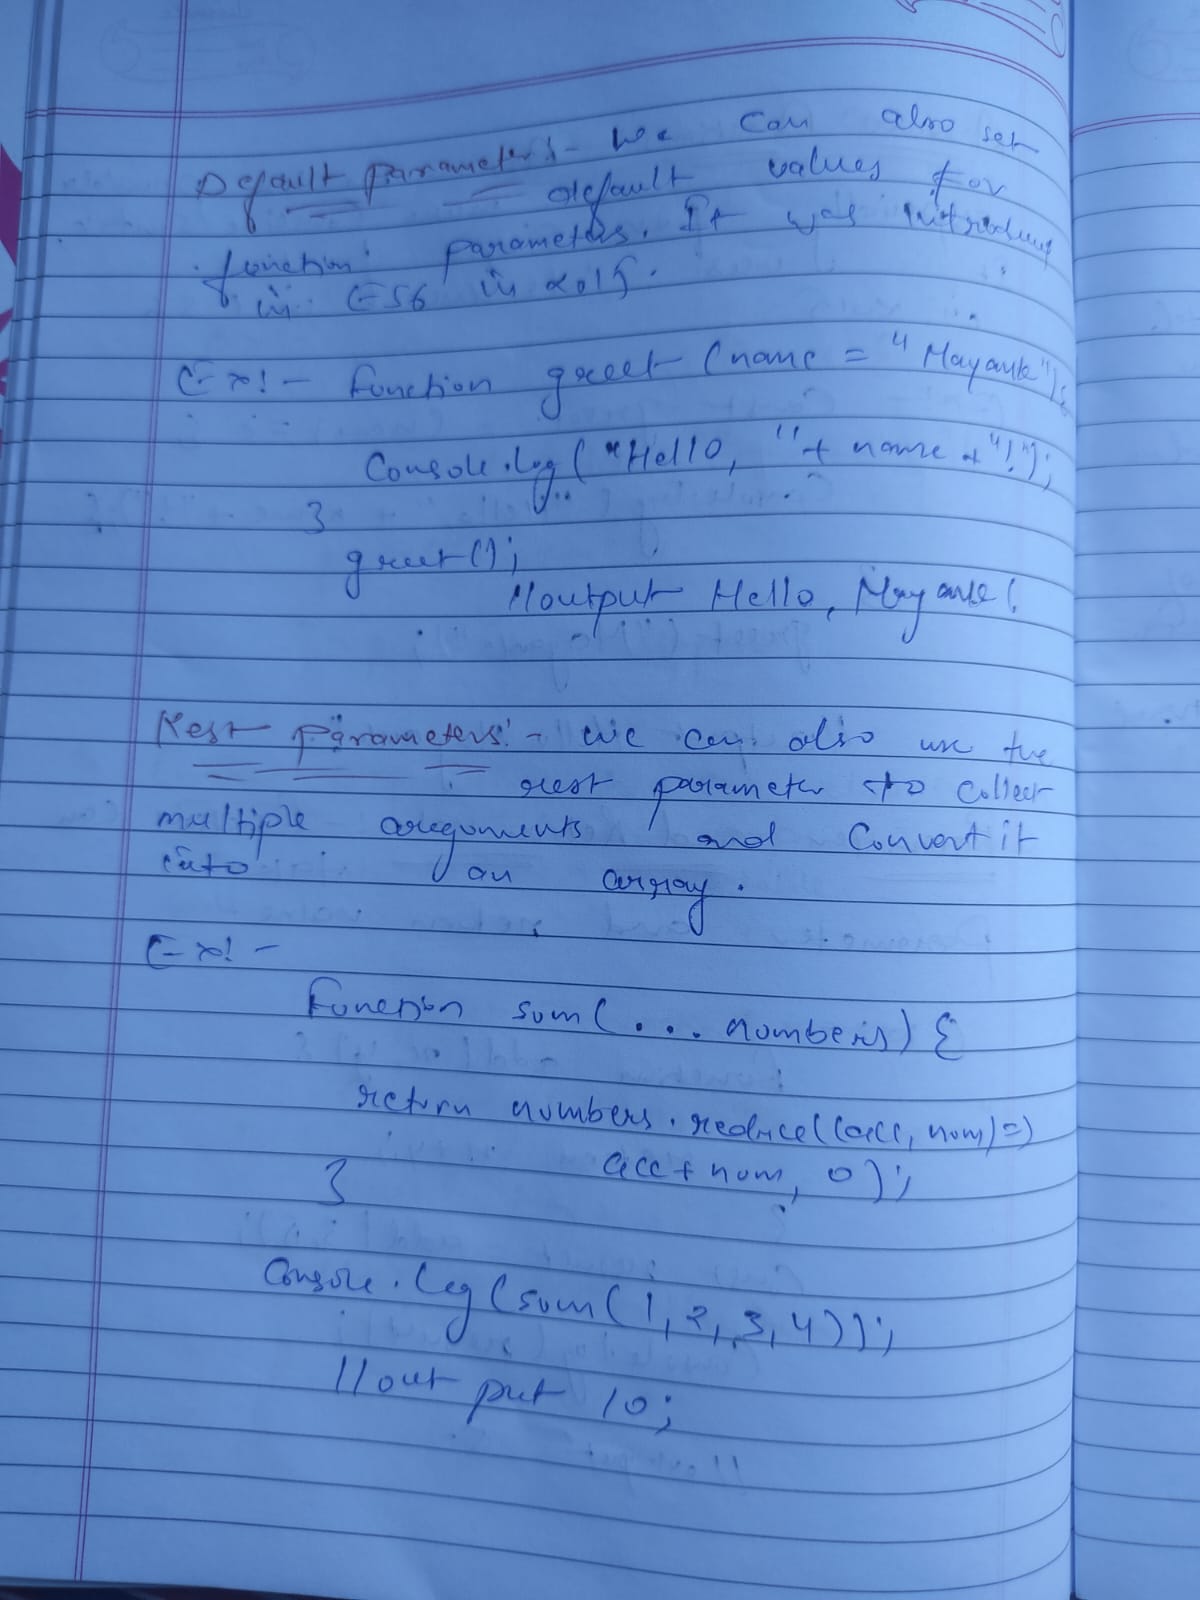 Default Parameters:- We can also set
default values for
function parameters. It was introduced
in ES6 in 2015.
Ex:- Function greet (name = "Mayank"){
Console.log("Hello, "+ name +"!");
}
greet();
//output Hello, Mayank!
Rest Parameters:- We can also use the
rest parameter to collect
multiple arguments and Convert it
into an array.
Ex:-
Function sum(...numbers) {
return numbers.reduce((acc, num)=>
acc+num, 0);
}
Console.log(sum(1,2,3,4));
//output 10;